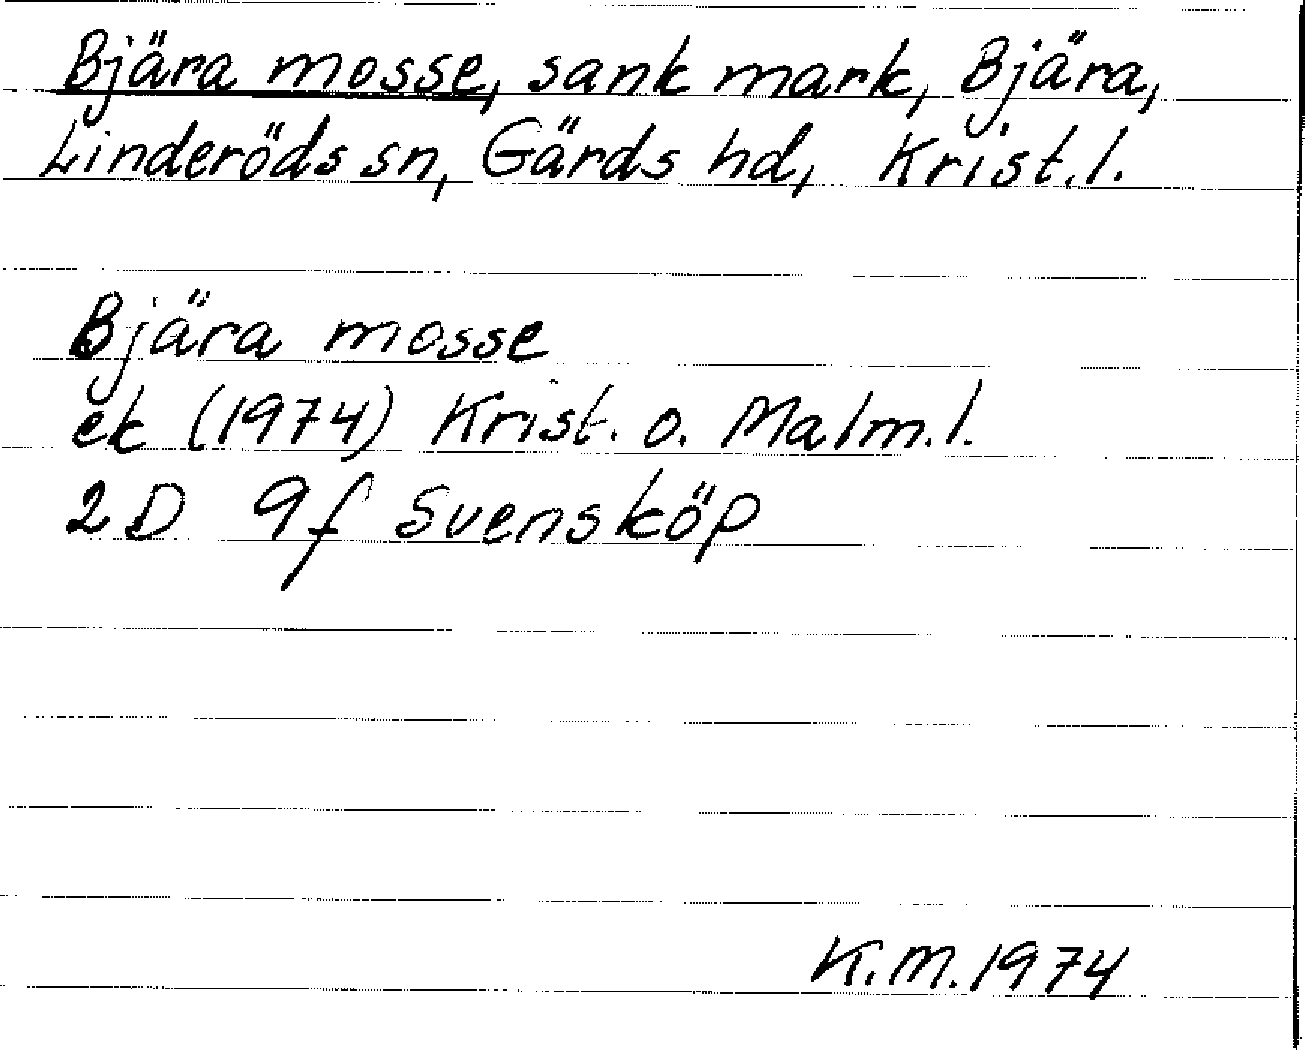 Bjära mosse, sank mark, Bjära,
Linderöds sn, Gärds hd, Krist.l.
Bjära mosse
ek (1974) Krist. o. Malm.l.
2D 9f Svensköp
K.M. 1974